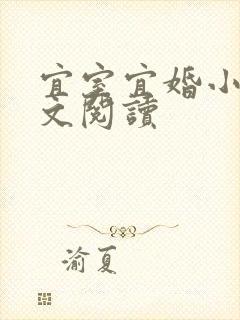 宜室宜婚小
文閱讀
渝夏